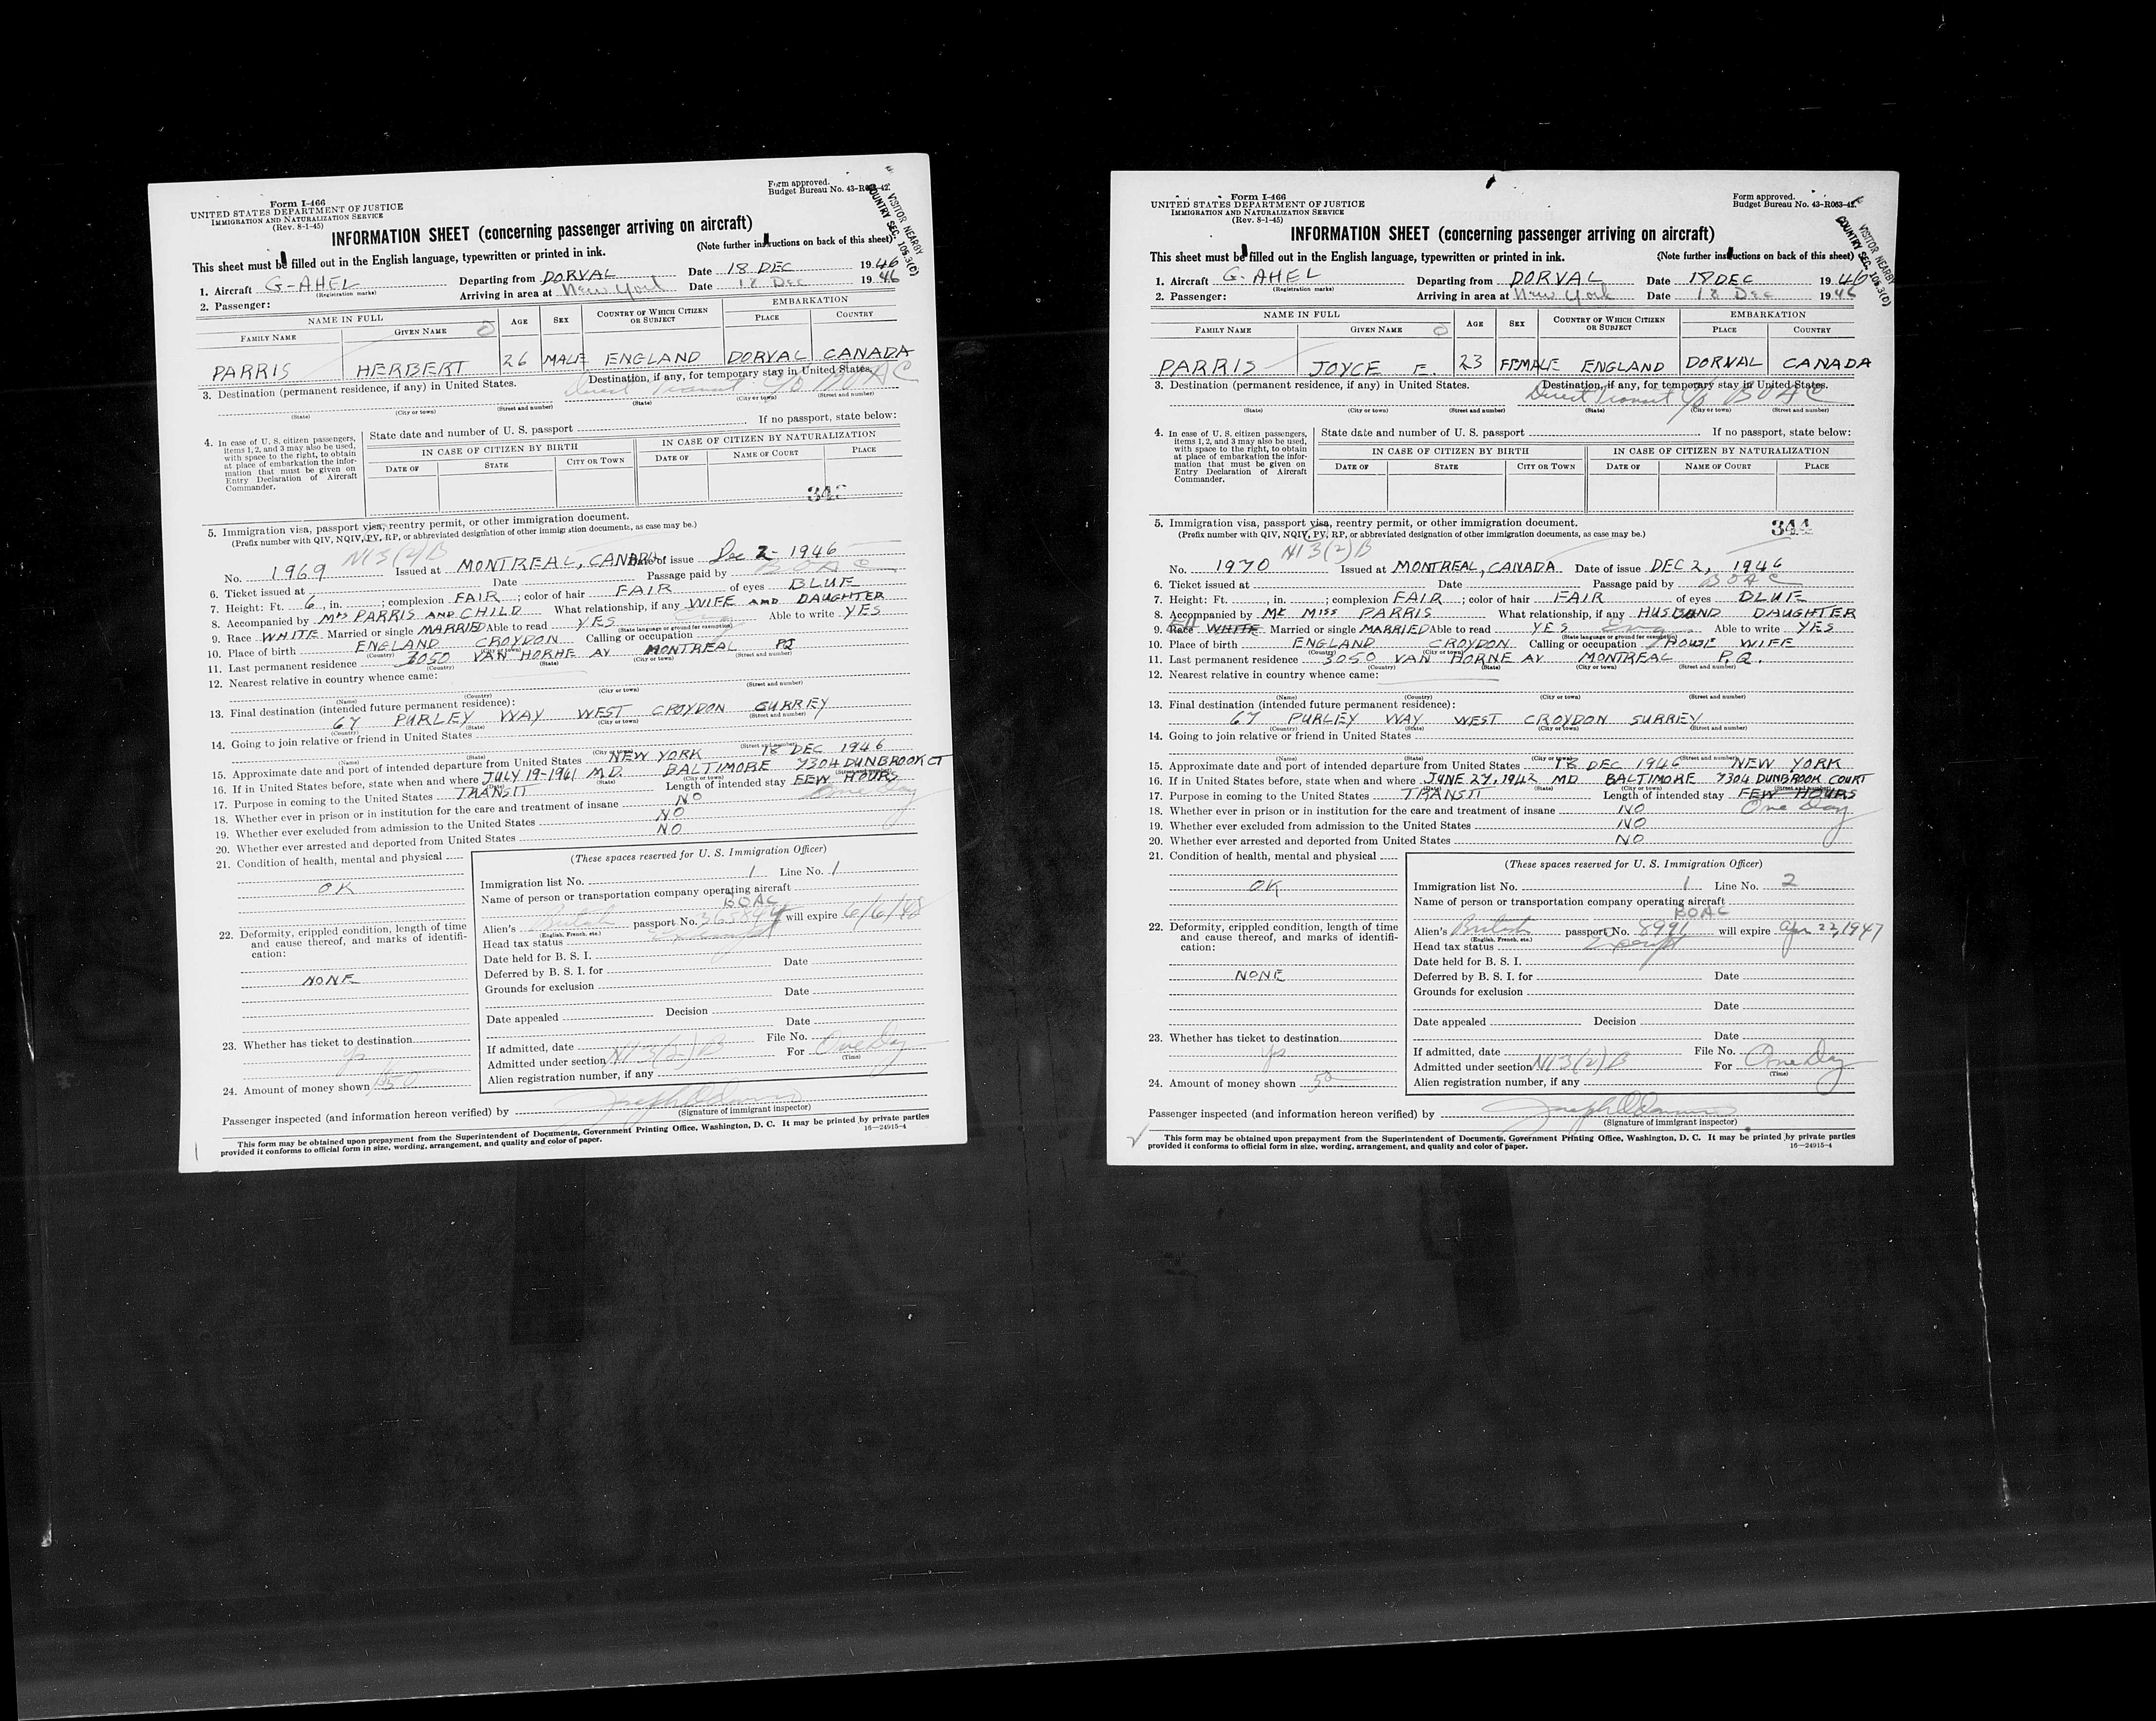 Form I-466
UNITED STATES DEPARTMENT OF JUSTICE
IMMIGRATION AND NATURALIZATION SERVICE
(Rev. 8-1-45)
Form approved.
Budget Bureau No. 43-R063-42.
VISITOR NEARBY
COUNTRY SEC. 108.3(D)
INFORMATION SHEET (concerning passenger arriving on aircraft)
This sheet must be filled out in the English language, typewritten or printed in ink. (Note further instructions on back of this sheet)
1. Aircraft G-AHEL Departing from DORVAL Date 18 DEC 1946
(Registration marks)
2. Passenger: Arriving in area at New York Date 18 Dec 1946
NAME IN FULL AGE SEX COUNTRY OF WHICH CITIZEN OR SUBJECT EMBARKATION
FAMILY NAME GIVEN NAME PLACE COUNTRY
PARRIS HERBERT 26 MALE ENGLAND DORVAL CANADA
3. Destination (permanent residence, if any) in United States. Destination, if any, for temporary stay in United States.
Direct Transit c/o BOAC
(State) (City or town) (Street and number) (State) (City or town) (Street and number)
4. In case of U. S. citizen passengers, items 1, 2, and 3 may also be used, with space to the right, to obtain at place of embarkation the information that must be given on Entry Declaration of Aircraft Commander.
State date and number of U. S. passport If no passport, state below:
IN CASE OF CITIZEN BY BIRTH IN CASE OF CITIZEN BY NATURALIZATION
DATE OF STATE CITY OR TOWN DATE OF NAME OF COURT PLACE
5. Immigration visa, passport visa, reentry permit, or other immigration document.
(Prefix number with QIV, NQIV, PV, RP, or abbreviated designation of other immigration documents, as case may be.)
NI 3(2)B
No. 1969 Issued at MONTREAL, CANADA Date of issue Dec 2- 1946
6. Ticket issued at Date Passage paid by BOAC
7. Height: Ft. 6, in. ; complexion FAIR ; color of hair FAIR of eyes BLUE
8. Accompanied by MRS PARRIS AND CHILD What relationship, if any WIFE AND DAUGHTER
9. Race WHITE Married or single MARRIED Able to read YES Able to write YES
(State language or ground for exemption)
10. Place of birth ENGLAND CROYDON Calling or occupation
(Country) (City or town)
11. Last permanent residence 3050 VAN HORNE AV MONTREAL PQ
(Country) (State) (City or town) (Street and number)
12. Nearest relative in country whence came:
(Name) (Country) (City or town) (Street and number)
13. Final destination (intended future permanent residence):
67 PURLEY WAY WEST CROYDON SURREY
(Country) (State) (City or town) (Street and number)
14. Going to join relative or friend in United States
(Name) (State) (City or town) (Street and number)
15. Approximate date and port of intended departure from United States NEW YORK 18 DEC 1946
16. If in United States before, state when and where JULY 19-1941 MD. BALTIMORE 7304 DUNBROOK CT
(Date) (State) (City or town) (Street and number)
17. Purpose in coming to the United States TRANSIT Length of intended stay FEW HOURS
One Day
18. Whether ever in prison or in institution for the care and treatment of insane NO
19. Whether ever excluded from admission to the United States NO
20. Whether ever arrested and deported from United States NO
21. Condition of health, mental and physical
OK
22. Deformity, crippled condition, length of time and cause thereof, and marks of identification:
NONE
23. Whether has ticket to destination
Yes
24. Amount of money shown
(These spaces reserved for U. S. Immigration Officer)
Immigration list No. 1 Line No. 1
Name of person or transportation company operating aircraft
BOAC
Alien's British passport No. will expire 6/6/48
(English, French, etc.)
Head tax status Exempt
Date held for B. S. I.
Deferred by B. S. I. for Date
Grounds for exclusion
Date
Date appealed Decision
Date
If admitted, date File No.
Admitted under section NI 3(2)B For One Day
(Time)
Alien registration number, if any
Passenger inspected (and information hereon verified) by
(Signature of immigrant inspector)
This form may be obtained upon prepayment from the Superintendent of Documents, Government Printing Office, Washington, D. C. It may be printed by private parties
provided it conforms to official form in size, wording, arrangement, and quality and color of paper. 16—24915-4
Form I-466
UNITED STATES DEPARTMENT OF JUSTICE
IMMIGRATION AND NATURALIZATION SERVICE
(Rev. 8-1-45)
Form approved.
Budget Bureau No. 43-R063-42.
VISITOR NEARBY
COUNTRY SEC. 108.3(D)
INFORMATION SHEET (concerning passenger arriving on aircraft)
This sheet must be filled out in the English language, typewritten or printed in ink. (Note further instructions on back of this sheet)
1. Aircraft G-AHEL Departing from DORVAL Date 18 DEC 1946
(Registration marks)
2. Passenger: Arriving in area at New York Date 18 Dec 1946
NAME IN FULL AGE SEX COUNTRY OF WHICH CITIZEN OR SUBJECT EMBARKATION
FAMILY NAME GIVEN NAME PLACE COUNTRY
PARRIS JOYCE E. 23 FEMALE ENGLAND DORVAL CANADA
3. Destination (permanent residence, if any) in United States. Destination, if any, for temporary stay in United States.
Direct Transit c/o BOAC
(State) (City or town) (Street and number) (State) (City or town) (Street and number)
4. In case of U. S. citizen passengers, items 1, 2, and 3 may also be used, with space to the right, to obtain at place of embarkation the information that must be given on Entry Declaration of Aircraft Commander.
State date and number of U. S. passport If no passport, state below:
IN CASE OF CITIZEN BY BIRTH IN CASE OF CITIZEN BY NATURALIZATION
DATE OF STATE CITY OR TOWN DATE OF NAME OF COURT PLACE
5. Immigration visa, passport visa, reentry permit, or other immigration document. 344
(Prefix number with QIV, NQIV, PV, RP, or abbreviated designation of other immigration documents, as case may be.)
NI 3(2)B
No. 1970 Issued at MONTREAL, CANADA Date of issue DEC 2, 1946
6. Ticket issued at Date Passage paid by BOAC
7. Height: Ft. , in. ; complexion FAIR ; color of hair FAIR of eyes BLUE
8. Accompanied by MR MISS PARRIS What relationship, if any HUSBAND DAUGHTER
9. Race WHITE Married or single MARRIED Able to read YES Eng Able to write YES
(State language or ground for exemption)
10. Place of birth ENGLAND CROYDON Calling or occupation HOUSE WIFE
(Country) (City or town)
11. Last permanent residence 3050 VAN HORNE AV MONTREAL P.Q.
(Country) (State) (City or town) (Street and number)
12. Nearest relative in country whence came:
(Name) (Country) (City or town) (Street and number)
13. Final destination (intended future permanent residence):
67 PURLEY WAY WEST CROYDON SURREY
(Country) (State) (City or town) (Street and number)
14. Going to join relative or friend in United States
(Name) (State) (City or town) (Street and number)
15. Approximate date and port of intended departure from United States 18 DEC 1946 NEW YORK
16. If in United States before, state when and where JUNE 27, 1942 MD BALTIMORE 7304 DUNBROOK COURT
(Date) (State) (City or town) (Street and number)
17. Purpose in coming to the United States TRANSIT Length of intended stay FEW HOURS
One Day
18. Whether ever in prison or in institution for the care and treatment of insane NO
19. Whether ever excluded from admission to the United States NO
20. Whether ever arrested and deported from United States NO
21. Condition of health, mental and physical
OK
22. Deformity, crippled condition, length of time and cause thereof, and marks of identification:
NONE
23. Whether has ticket to destination
Yes
24. Amount of money shown 50
(These spaces reserved for U. S. Immigration Officer)
Immigration list No. 1 Line No. 2
Name of person or transportation company operating aircraft
BOAC
Alien's British passport No. 8991 will expire Apr 22, 1947
(English, French, etc.)
Head tax status Exempt
Date held for B. S. I.
Deferred by B. S. I. for Date
Grounds for exclusion
Date
Date appealed Decision
Date
If admitted, date File No.
Admitted under section NI 3(2)B For One Day
(Time)
Alien registration number, if any
Passenger inspected (and information hereon verified) by
(Signature of immigrant inspector)
This form may be obtained upon prepayment from the Superintendent of Documents, Government Printing Office, Washington, D. C. It may be printed by private parties
provided it conforms to official form in size, wording, arrangement, and quality and color of paper. 16—24915-4